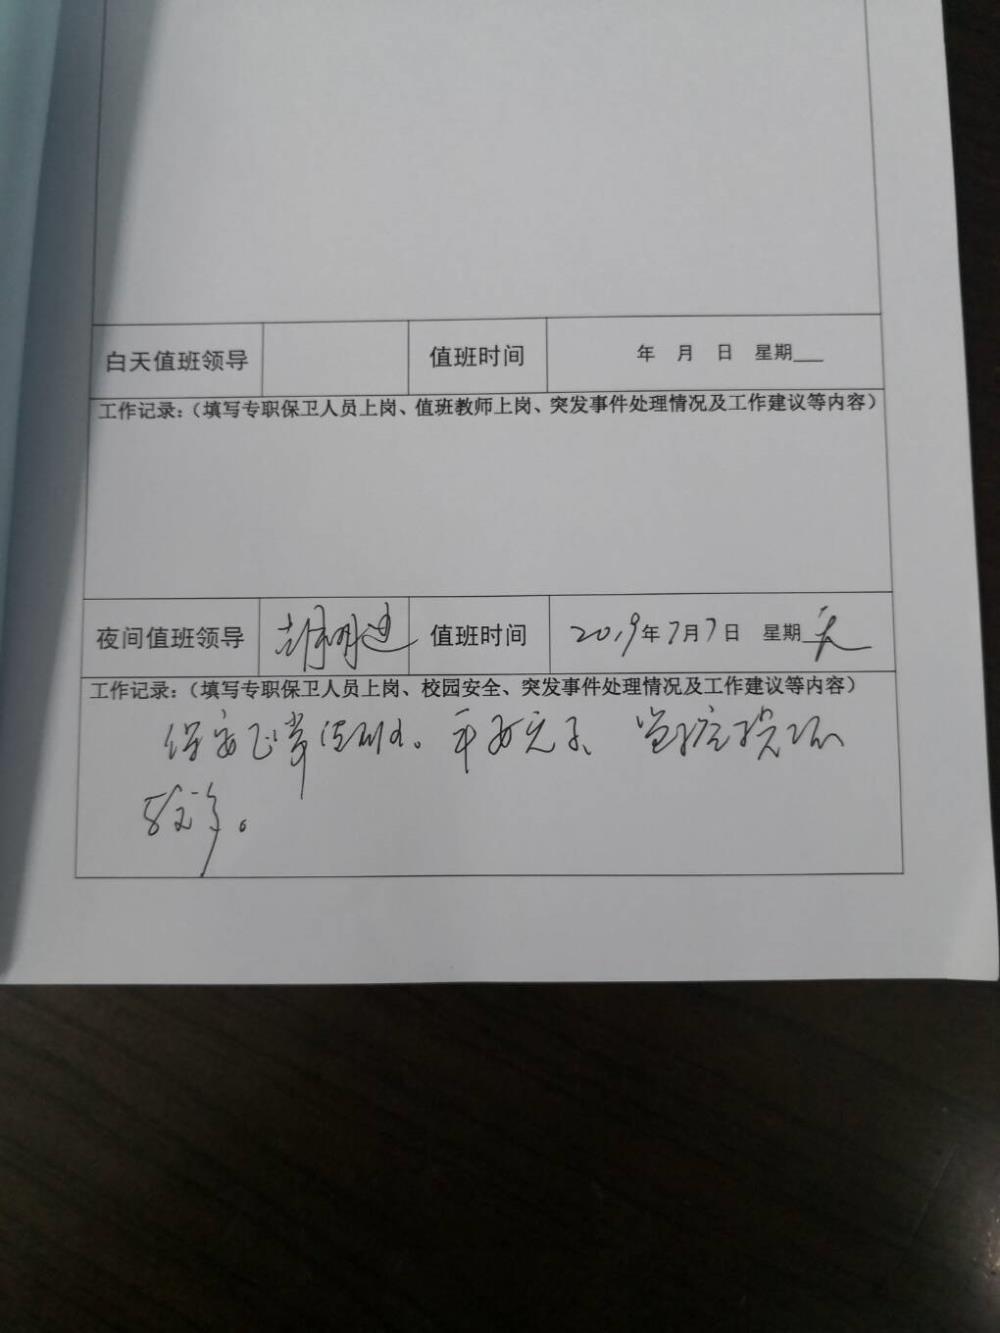 白天值班领导 值班时间 年 月 日 星期___
工作记录:(填写专职保卫人员上岗、值班教师上岗、突发事件处理情况及工作建议等内容)
夜间值班领导 值班时间 2019年7月7日 星期天
工作记录:(填写专职保卫人员上岗、校园安全、突发事件处理情况及工作建议等内容)
保安正常值班。 监控损坏
较多。